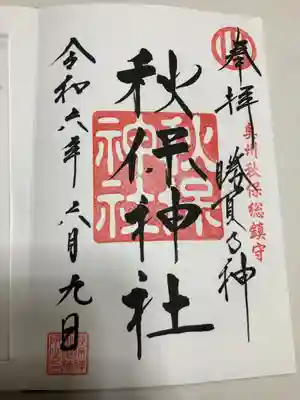 奉拝
勝負の神
奥州秋保総鎮守
秋保神社
秋保神社
令和六年六月九日